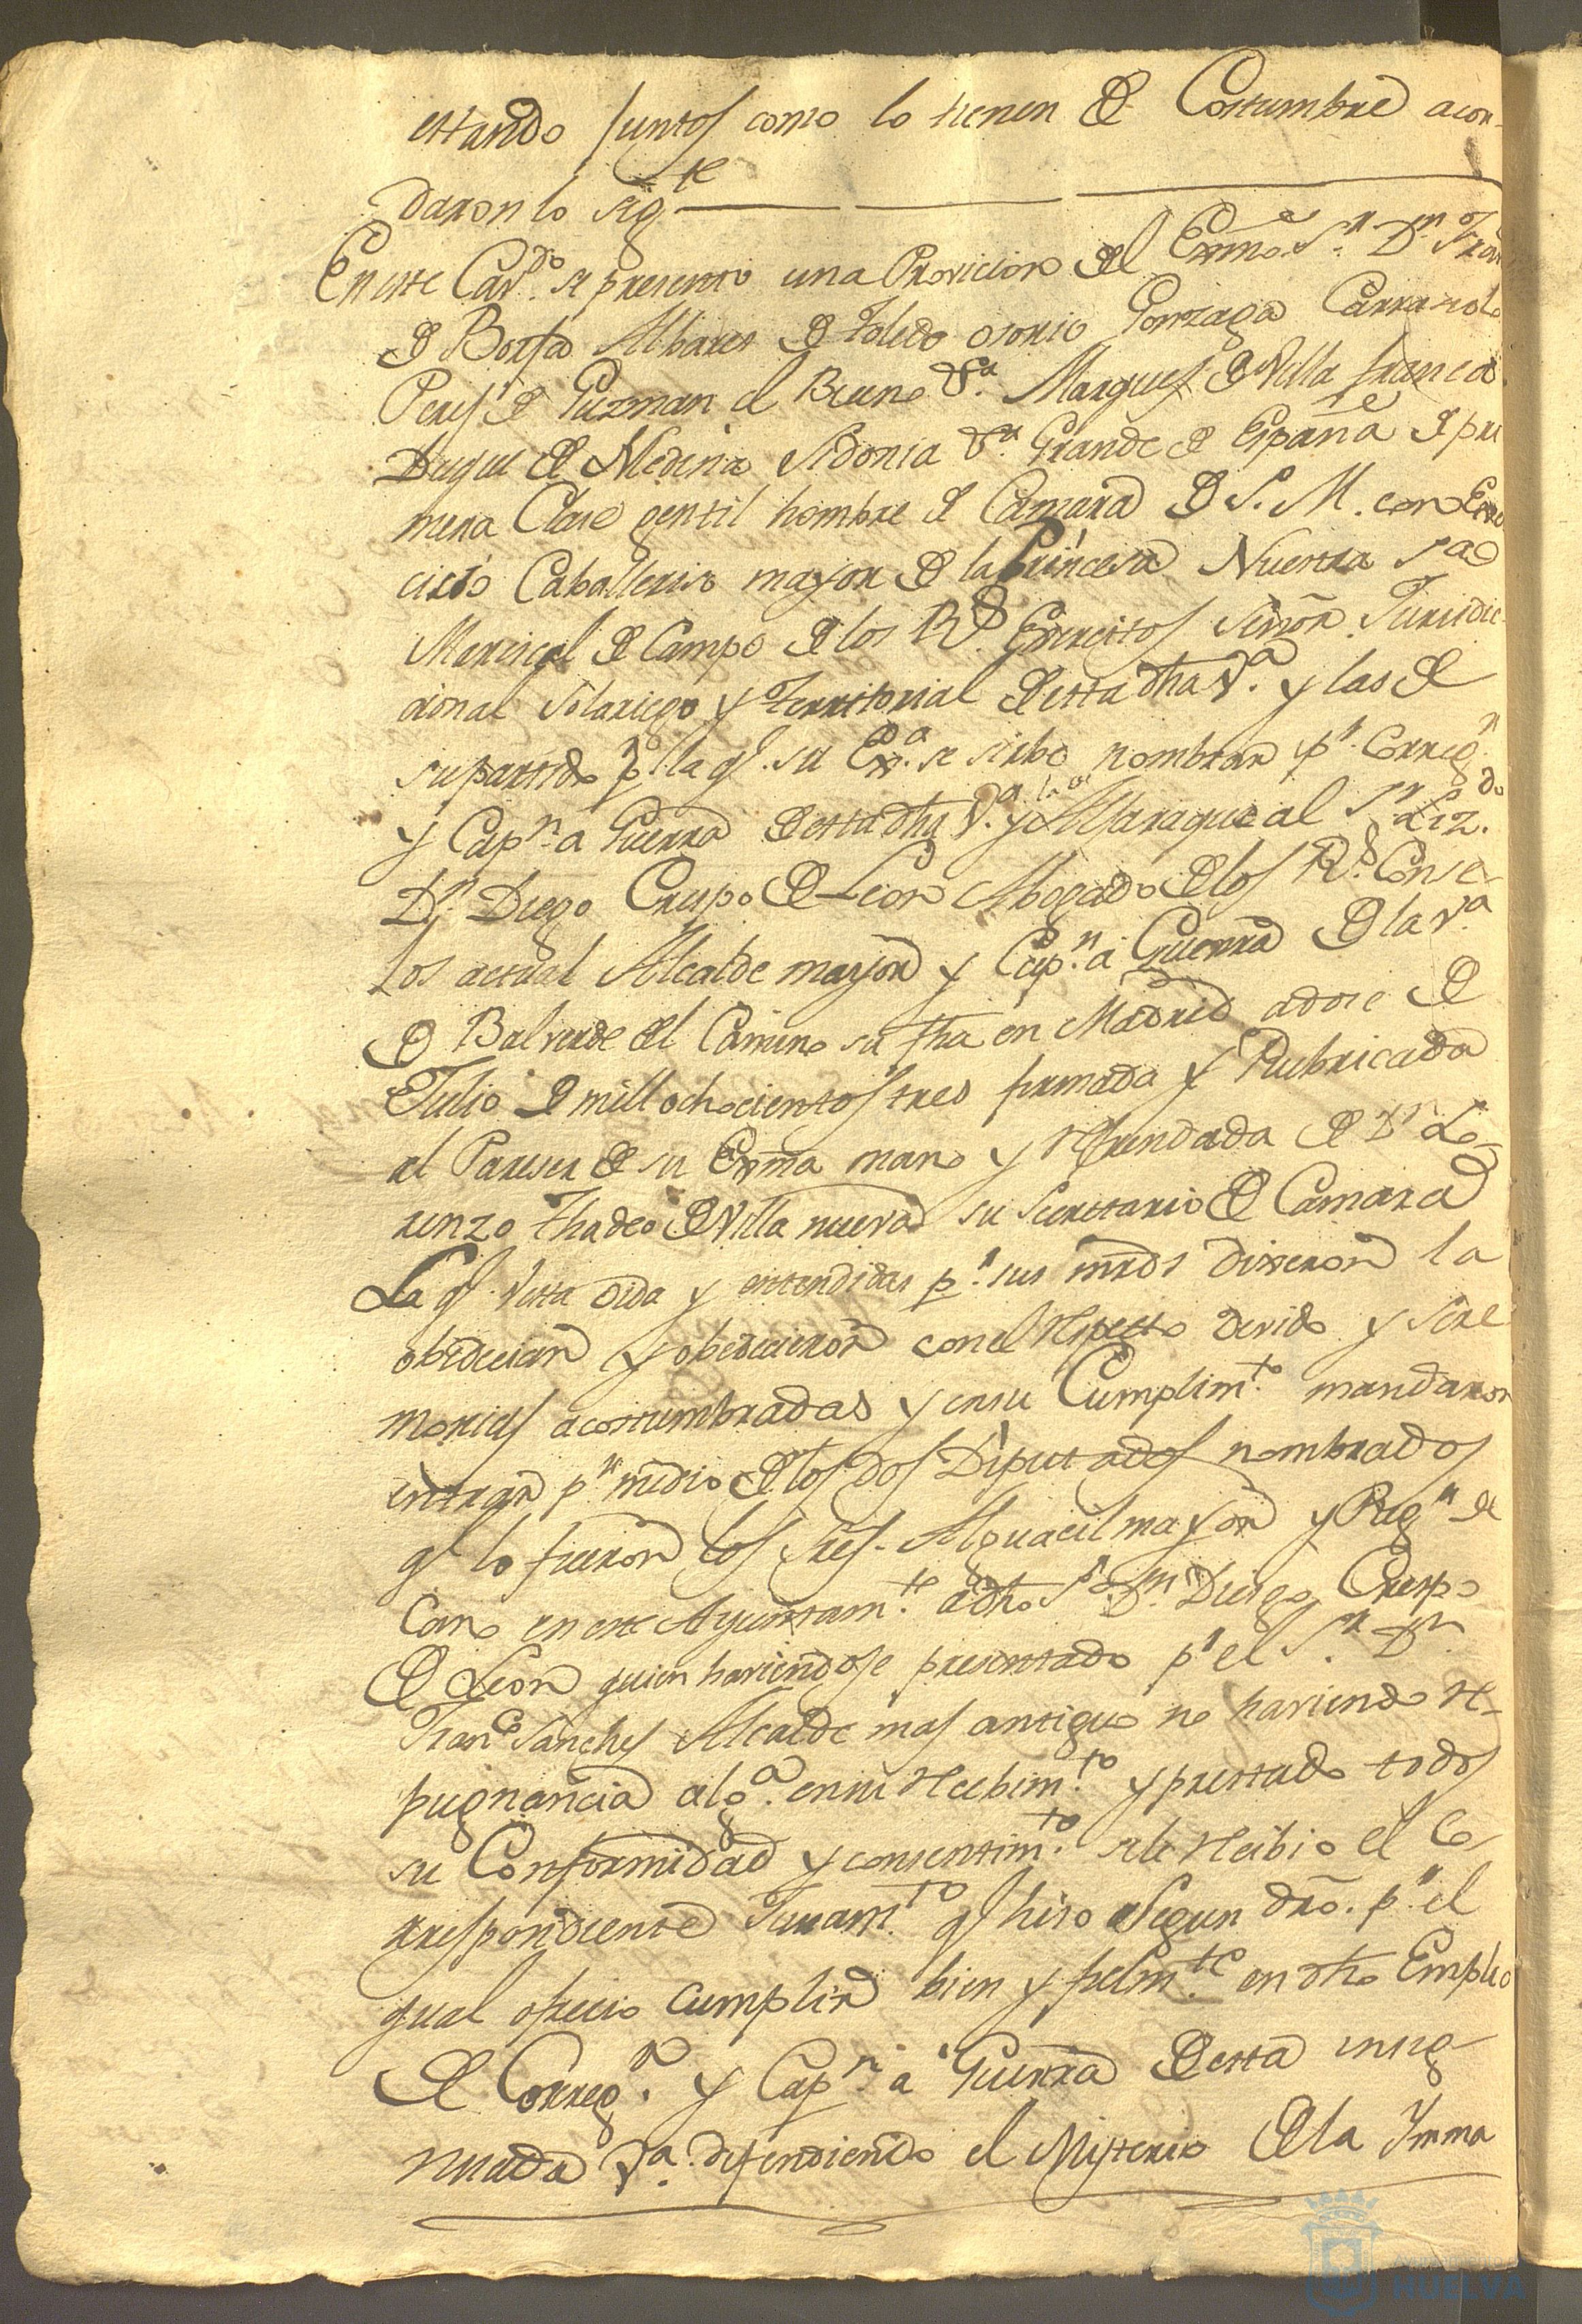 estando Juntos como lo tienen de Costumbre acor-
daron lo sigte
En este Cavdo. se presento una Provicion del Exmo. Sr. Dn. Fran
de Borja Albares de Toledo osorio Gonzaga Carraciolo
Peres de Guzman el Bueno &a. Marques de Villa franca
Duque de Medina Sidonia &a. Grande de España de pri
mera Clase gentil hombre de Camara de S. M. con Exer
cicio Caballeriso mayor de la Princesa Nuestra Sa
Mariscal de Campo de los Rs. Exercitos Señor Jurisdic-
cional Solariego y Territorial de esta dha Va. y las de
su partido pr. la ql. su Exa. se sirbio nombrar pr. Corregr.
y Capn. a Guerra de esta dha Va. y Almaraque al Sr. Lizdo.
Dn. Diego Crespo de Leon Abogado de los Rs. Conse-
los actual Alcalde mayor y Capn. a Guerra de la Va.
de Balverde del Camino su fha en Madrid a dose de
Julio de mill ochocientos tres firmada y Rubricada
al Pareser de su Exma mano y refrendada de Dn Lo-
renzo Thadeo de Villa nueva su Secretario de Camara
La ql. vista oida y entendidas pr. sus mrds dixeron la
obedecian y obedecieron con el respecto devido y sere
monias acostumbradas y en su Cumplimto. mandaron
entrar pr. medio de los dos Diputados nombrados
ql lo fueron los Sres. Alguacil mayor y Regr de
Cano en este Ayuntamte. a dho Sr. Dn. Diego Crespo
de Leon quien haviendose presentado pr el Sr. Dn.
Franco Sanches Alcalde mas antiguo no haviendo re-
pugnancia alga. en su recibimto. y prestado todos
su Conformidad y consentimto. se le recibio el Co-
rrespondiente Juramto. ql hiso segun dro. pr. el
qual ofrecio cumplir bien y fielmte. en dho Empleo
de Corregr. y Capn. a Guerra de esta insig-
nuada Va. defendiendo el Misterio de la Ymma
HUELVA